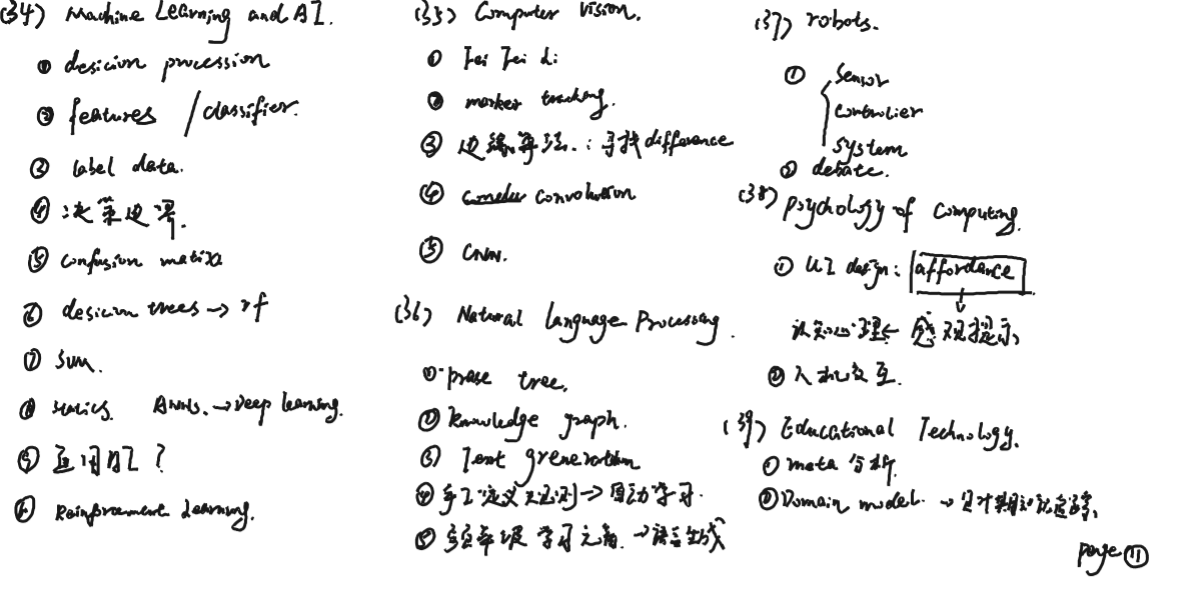 (34) Machine Learning and AI.
① desicion procession
② features / classifier.
③ label data.
④ 决策边界.
⑤ confusion matix
⑥ desicion trees → rf
⑦ SVM.
⑧ statics. ANNs. → Deep learning.
⑨ 通用AI ?
⑩ Reinforcement Learning.
(35) Computer vision.
① Fei Fei Li
② marker tracking.
③ 边缘算法. : 寻找 difference
④ convolution
⑤ CNN.
(36) Natural language Processing.
① prase tree.
② knowledge graph.
③ Text generation
④ 手工定义 → 自动学习.
⑤ 学习元音. → 语言生成
(37) robots.
① sensor
controller
system
② debate.
(38) psychology of computing.
① UI design: affordance
认知心理 ← 感观提示.
② 人机交互.
(39) Educational Technology.
① meta 分析.
② Domain model. → 贝叶斯知识追踪.
page ⑪